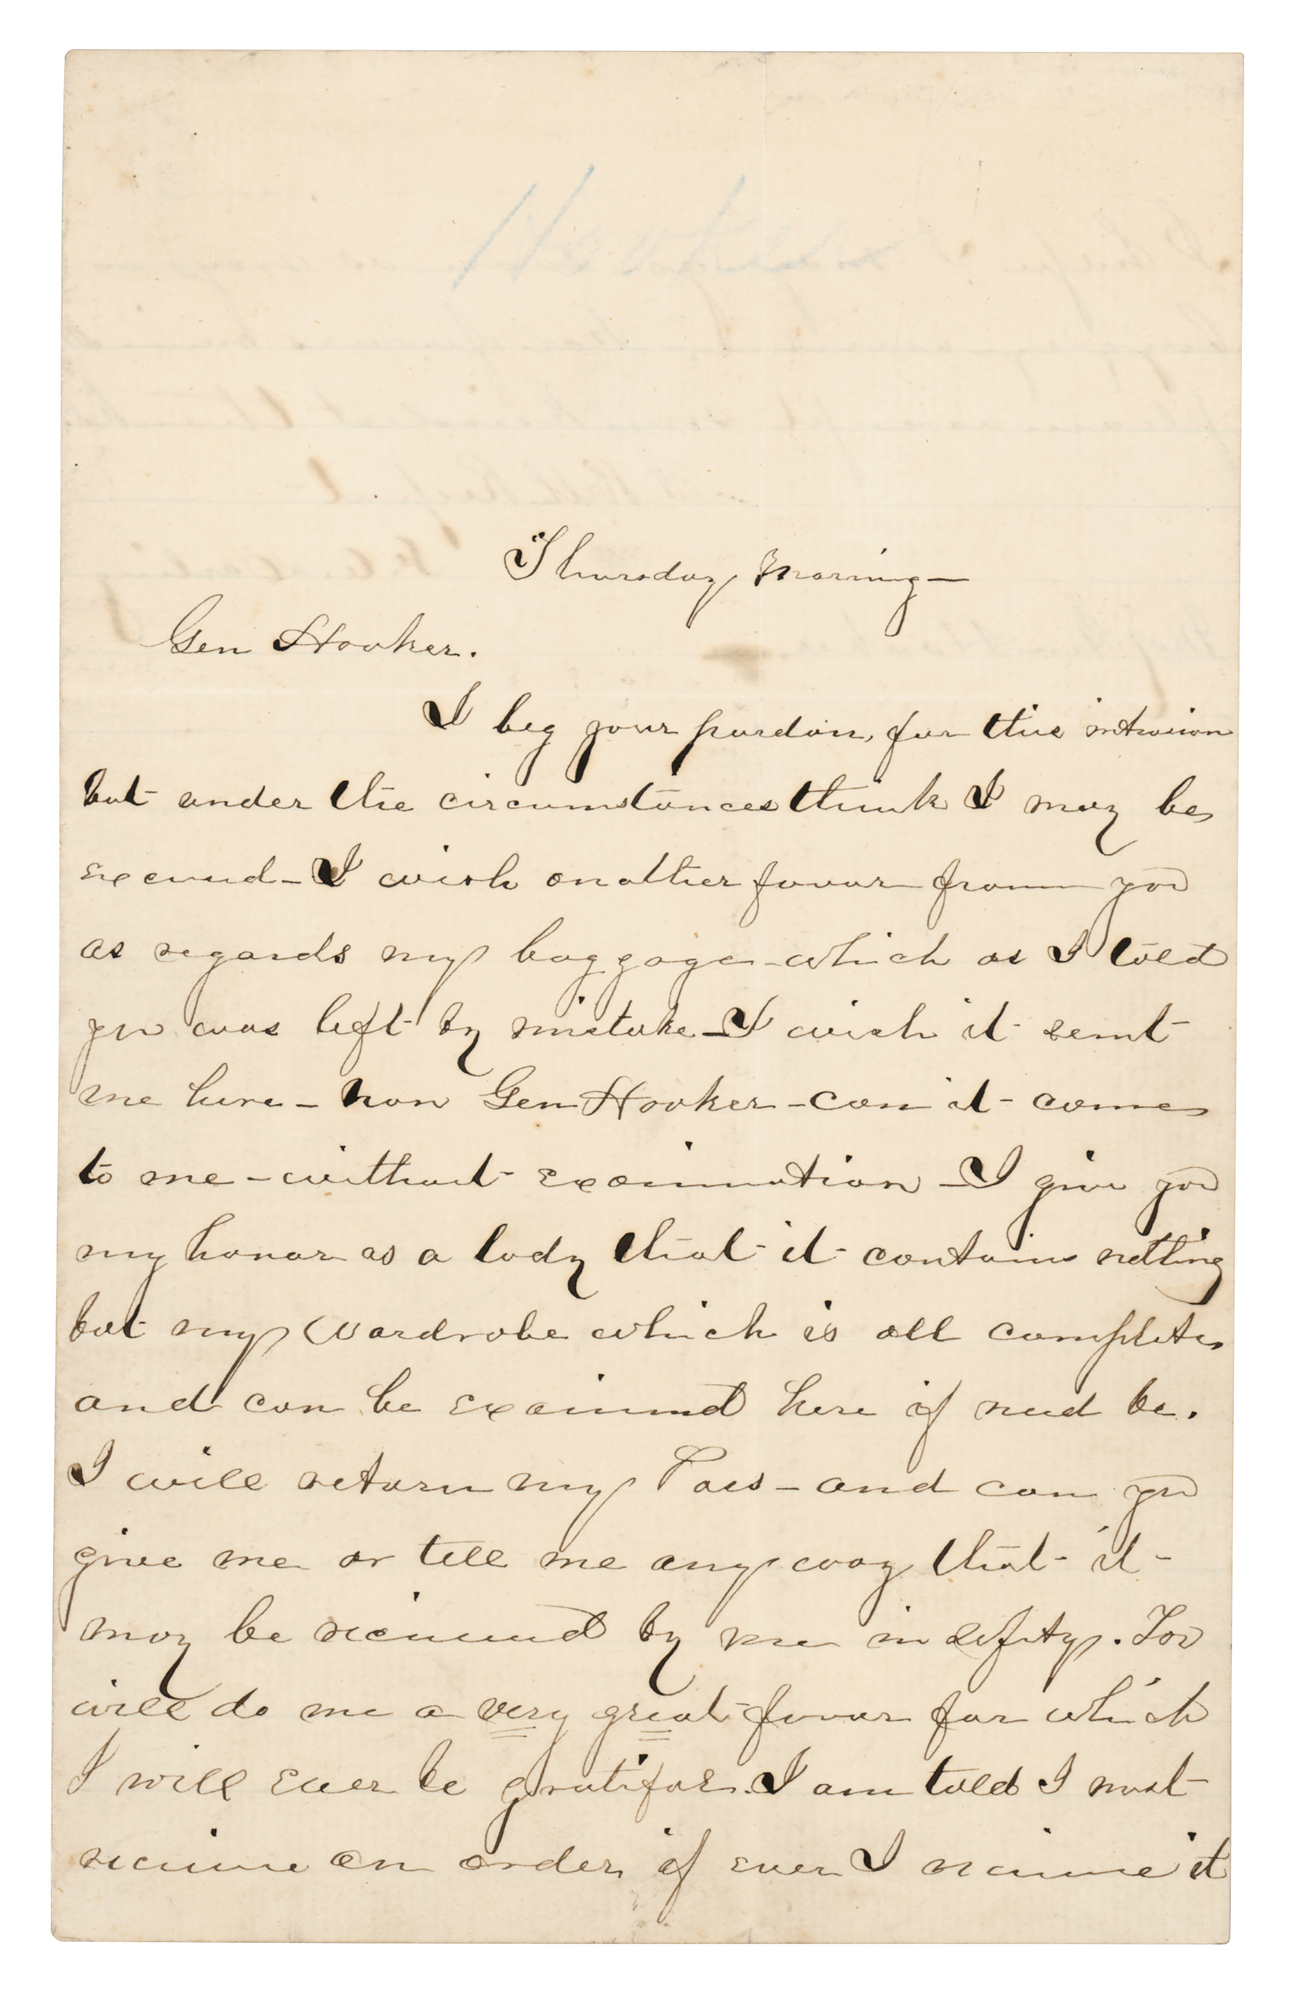 Hooker
Thursday Morning—
Gen Hooker.
I beg your pardon, for this intrusion
but under the circumstances think I may be
excused – I wish another favor from you
as regards my baggage – which as I told
you was left by mistake – I wish it sent
me here – now Gen Hooker – can it come
to me – without examination – I give you
my honor as a lady that it contains nothing
but my Wardrobe which is all complete
and can be examined here if need be.
I will return my Pass – and can you
give me or tell me any way that it –
may be received by me in safety. You
will do me a very great favor for which
I will ever be gratiful. I am told I must
receive an order, if ever I receive it